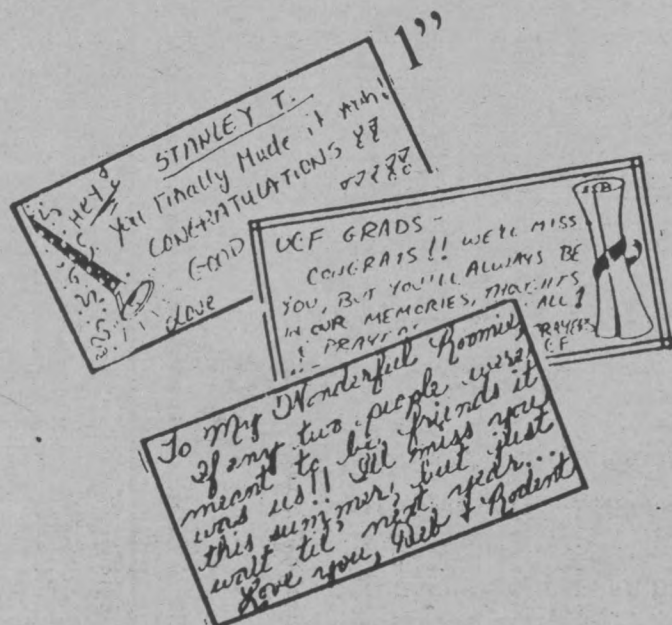 1”
HEY! STANLEY T.
You Finally Made it
CONGRATULATIONS
GOOD
Love
UCF GRADS -
CONGRATS!! WE'LL MISS
YOU, BUT YOU'LL ALWAYS BE
IN OUR MEMORIES, THOUGHTS
PRAYER ALL
PRAYERS
To My Wonderful Roomie,
If any two people were
meant to be friends it
was us!! I'll miss you
this summer, but just
wait til' next year...
Love you, Deb & Rodent